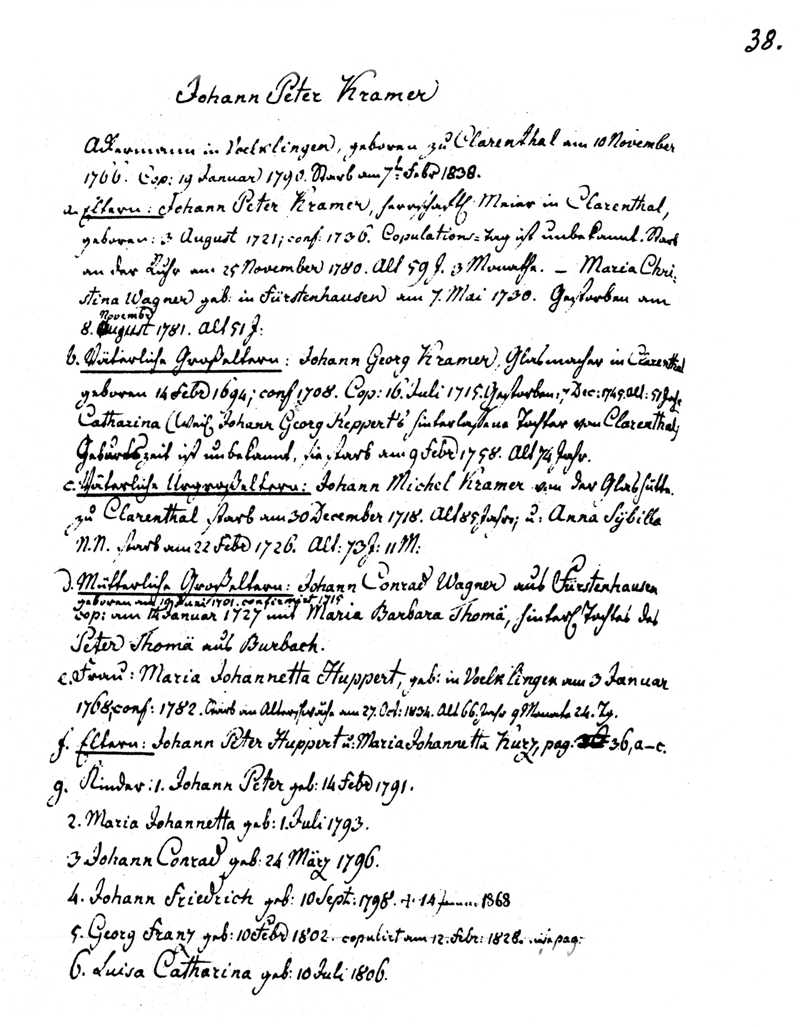 38.
Johann Peter Kramer
Ackermann in Voelklingen, geboren zu Clarenthal am 10 November
1766. Cop: 19 Januar 1790. Starb am 7t. Febr 1838.
a. Eltern: Johann Peter Kramer, herrschaftl. Meier in Clarenthal,
geboren: 3 August 1721; conf: 1736. Copulations-Tag ist unbekannt. Starb
an der Ruhr am 25 November 1780. Alt 59 J. 3 Monathe. – Maria Chri-
stina Wagner geb: in Fürstenhausen am 7. Mai 1730. Gestorben am
November
8. August 1781. Alt 51 J:
b. Väterliche Großeltern: Johann Georg Kramer, Glasmacher in Clarenthal
geboren 14 Febr 1694; conf 1708. Cop: 16. Juli 1715. Gestorben: 7 Dec: 1745. Alt: 51 Jahr.
Catharina (Weil. Johann Georg Keppert's hinterlaßene Tochter von Clarenthal;
Geburtszeit ist unbekannt, sie starb am 9 Febr 1758. Alt 74 Jahr.
c. Väterliche Urgroßeltern: Johann Michel Kramer von der Glashütte
zu Clarenthal starb am 30 December 1718. Alt 85 Jahr; u: Anna Sybilla
N.N. starb am 22 Febr 1726. Alt: 73 J: 11 M:
d. Mütterliche Großeltern: Johann Conrad Wagner aus Fürstenhausen
geboren am 19 Juni 1701. confirmiert 1715
cop: am 14 Januar 1727 mit Maria Barbara Thomä, hinterl. Tochter des
Peter Thomä aus Burbach.
e. Frau: Maria Johannetta Huppert, geb: in Voelklingen am 3 Januar
1768; conf: 1782. Starb an Altersschwäche am 27. Oct: 1834. Alt 66 Jahr 9 Monate 24. Tg.
f. Eltern: Johann Peter Huppert u: Maria Johannetta Kurz, pag. 36, a–c.
g. Kinder: 1. Johann Peter geb: 14 Febr 1791.
2. Maria Johannetta geb: 1. Juli 1793.
3 Johann Conrad geb: 24 März 1796.
4. Johann Friedrich geb: 10 Sept: 1798. † 14 Januar 1868
5. Georg Franz geb: 10 Febr 1802. copulirt am 12. Febr: 1828. pag:
6. Luisa Catharina geb: 10 Juli 1806.